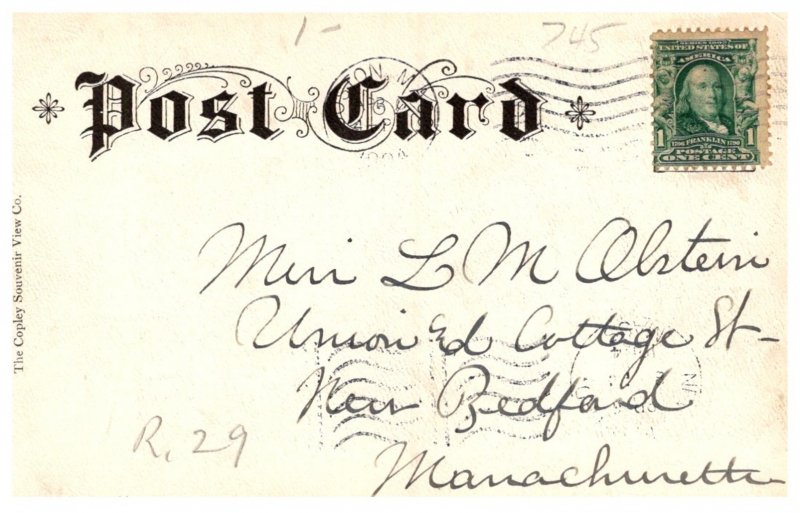 1-
745
Post Card
SERIES 1902
UNITED STATES OF
AMERICA
1 1706 FRANKLIN 1790 1
POSTAGE
ONE CENT
The Copley Souvenir View Co.
Miss L M
Union Cottage St-
New Bedford
Massachusetts
R. 29